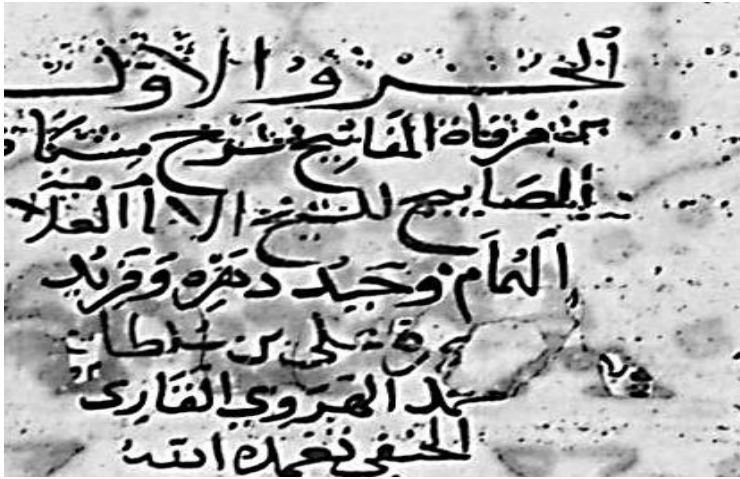 الجزو الاول
من مرقاة المفاتيح شرح مشكاة
المصابيح للشيخ الامام العلامة
الهمام وحيد دهره وفريد
عصره علي بن سلطان
محمد الهروي القاري
الحنفي تغمده الله